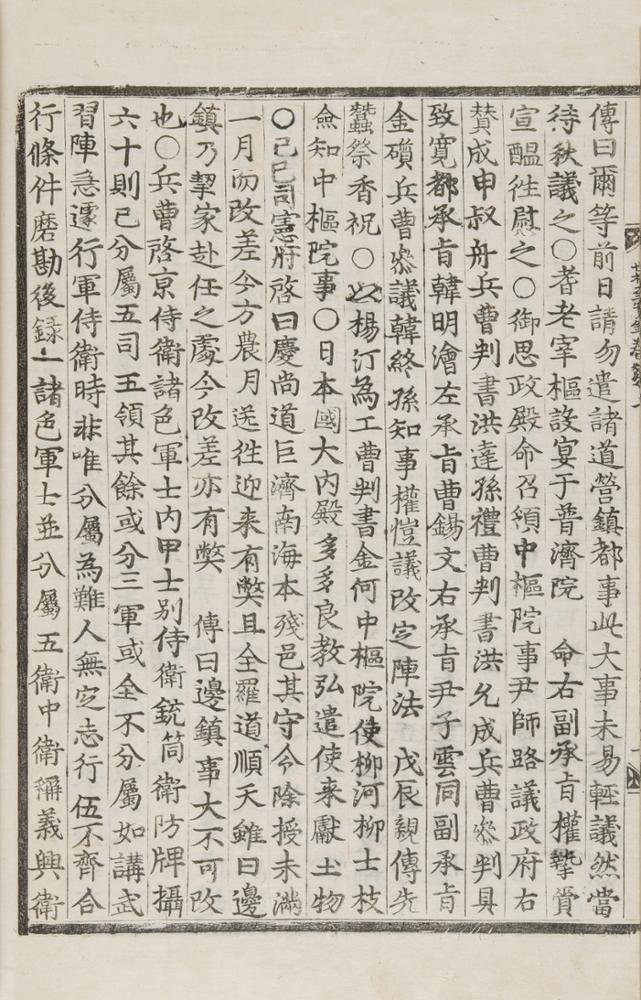 傳曰爾等前日請勿遣諸道營鎭都事此大事未易輕議然當
待秋議之○耆老宰樞設宴于普濟院　命右副承旨權摯賫
宣醞徃慰之○御思政殿命召領中樞院事尹師路議政府右
賛成申叔舟兵曹判書洪達孫禮曹判書洪允成兵曹叅判具
致寬都承旨韓明澮左承旨曹錫文右承旨尹子雲同副承旨
金礩兵曹叅議韓終孫知事權愷議改定陣法　戊辰親傳先
蠶祭香祝○以楊汀為工曹判書金何中樞院使柳河柳士枝
僉知中樞院事○日本國大內殿多多良教弘遣使来獻土物
○己巳司憲府啓曰慶尚道巨濟南海本殘邑其守令除授未滿
一月而改差今方農月送徃迎来有弊且全羅道順天雖曰邊
鎮乃挈家赴任之處今改差亦有弊　傳曰邊鎮事大不可改
也○兵曹啓京侍衛諸色軍士內甲士別侍衛銃筒衛防牌攝
六十則已分屬五司五領其餘或分三軍或全不分屬如講武
習陣急遽行軍侍衛時非唯分屬為難人無定志行伍不齊合
行條件磨勘後録一諸色軍士並分屬五衛中衛稱義興衛